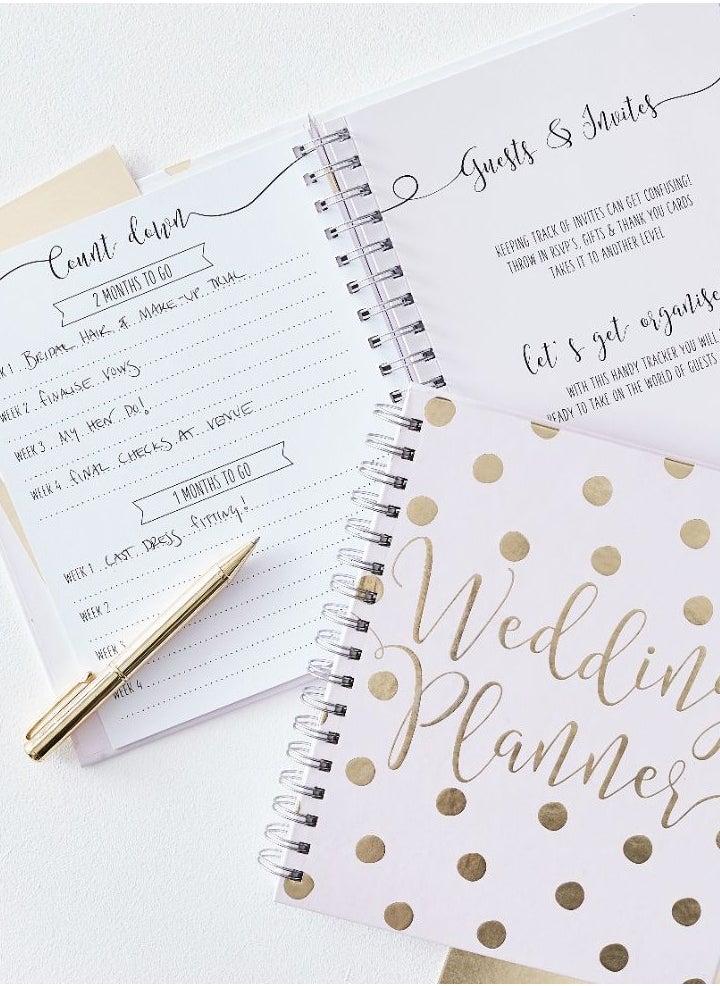 Count down
2 MONTHS TO GO
K 1. BRIDAL HAIR & MAKE-UP TRIAL
WEEK 2. FINALISE VOWS
WEEK 3. MY HEN DO!
WEEK 4. FINAL CHECKS AT VENUE
1 MONTHS TO GO
WEEK 1. LAST DRESS FITTING!
WEEK 2
WEEK 3
WEEK 4
Guests & Invites
KEEPING TRACK OF INVITES CAN GET CONFUSING!
THROW IN RSVP'S, GIFTS & THANK YOU CARDS
TAKES IT TO ANOTHER LEVEL
let's get organise
WITH THIS HANDY TRACKER YOU WILL
READY TO TAKE ON THE WORLD OF GUESTS
Wedding
Planner